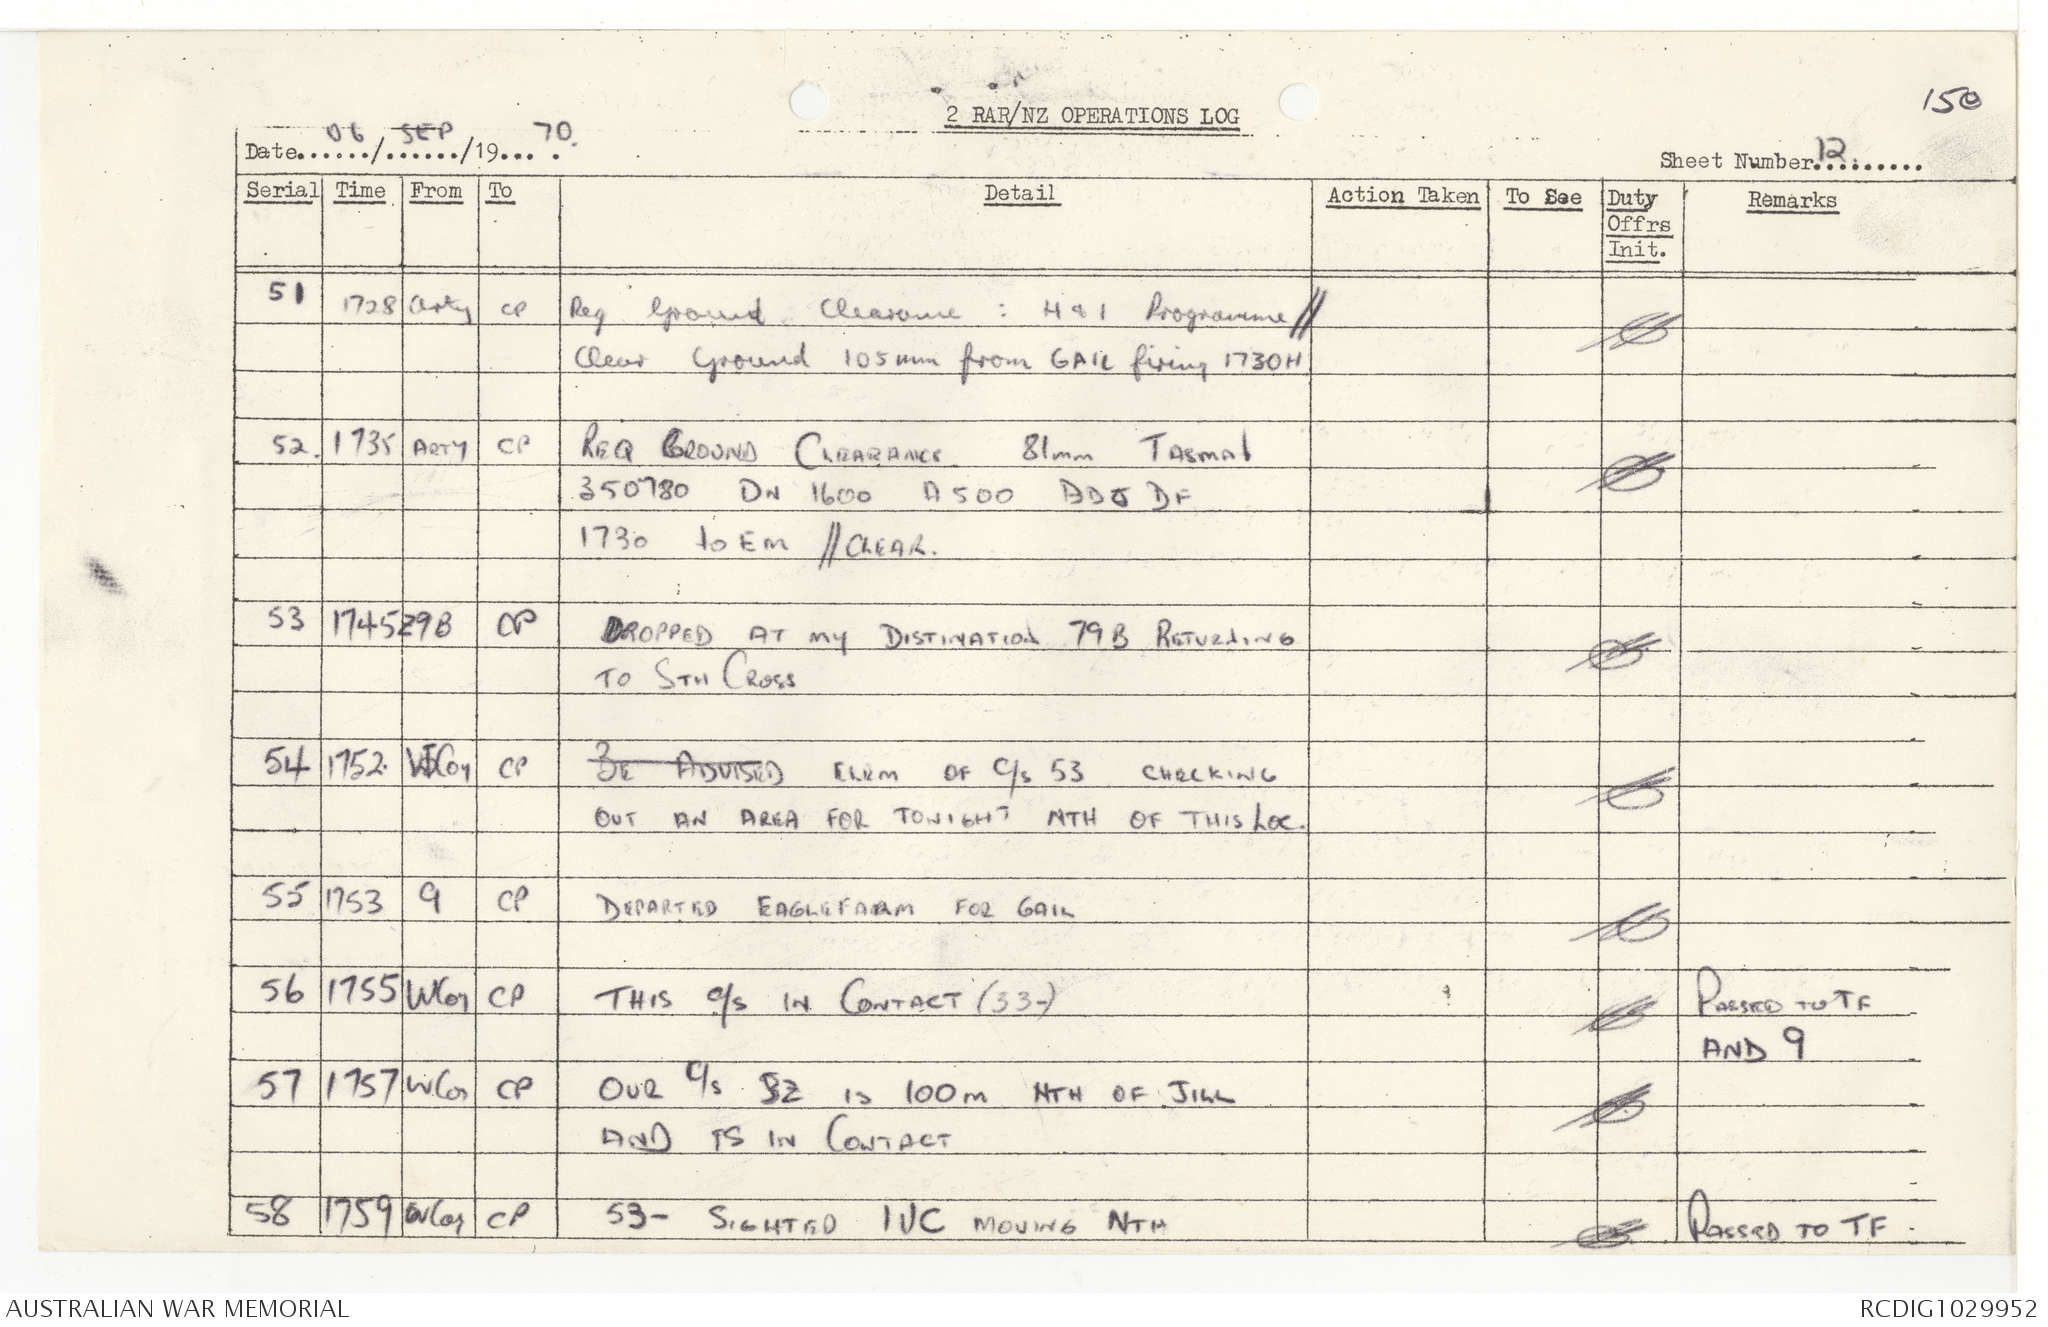 150
2 RAR/NZ OPERATIONS LOG
Date 06 / SEP /19 70.
Sheet Number 12
Serial Time From To Detail Action Taken To See Duty Offrs Init. Remarks
51 1728 Arty CP Req Ground Clearance : H & I Programme //
Clear Ground 105mm from GAIL firing 1730H
52. 1735 ARTY CP REQ GROUND CLEARANCE 81mm TASMAN
350780 DN 1600 A500 ADJ DF
1730 to EM // CLEAR.
53 1745 29B CP DROPPED AT MY DISTINATION 79B RETURNING
TO STH CROSS
54 1752. WCoy CP BE ADVISED ELEM OF C/S 53 CHECKING
OUT AN AREA FOR TONIGHT NTH OF THIS LOC.
55 1753 9 CP DEPARTED EAGLEFARM FOR GAIL
56 1755 WCoy CP THIS C/S IN CONTACT (53-) PASSED TO TF
AND 9
57 1757 W.Coy CP OUR C/S 52 IS 100m NTH OF JILL
AND IS IN CONTACT
58 1759 WCoy CP 53- SIGHTED 1VC MOVING NTH PASSED TO TF
AUSTRALIAN WAR MEMORIAL
RCDIG1029952